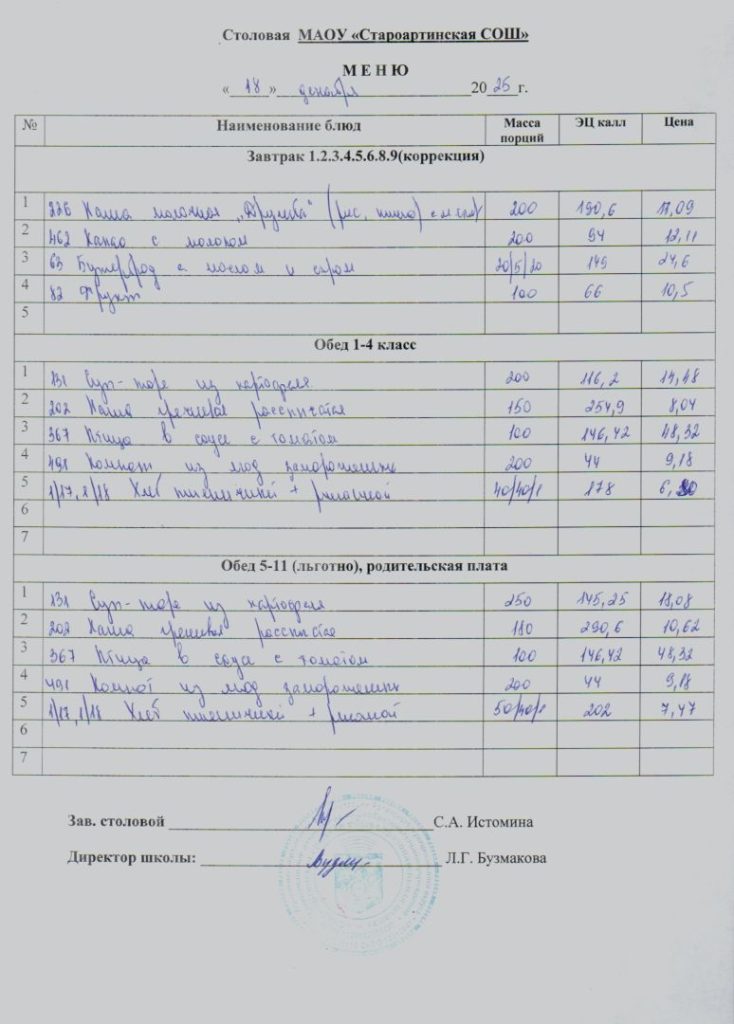 Столовая МАОУ «Староартинская СОШ»
М Е Н Ю
« 18 » декабря 2025 г.
№ Наименование блюд Масса порций ЭЦ калл Цена
Завтрак 1.2.3.4.5.6.8.9(коррекция)
1 226 Каша молочная „Дружба" (рис, пшено) с м 200 190,6 17,09
2 462 Какао с молоком 200 94 12,11
3 63 Бутерброд с маслом и сыром 20/5/20 149 24,6
4 82 Фрукт 100 66 10,5
5
Обед 1-4 класс
1 131 Суп-пюре из картофеля 200 116,2 14,48
2 202 Каша гречневая рассыпчатая 150 254,9 8,04
3 367 Птица в соусе с томатом 100 146,42 48,32
4 491 Компот из ягод замороженных 200 44 9,18
5 1/17, 1/18 Хлеб пшеничный + ржаной 178 6,
6
7
Обед 5-11 (льготно), родительская плата
1 131 Суп-пюре из картофеля 250 145,25 18,08
2 202 Каша гречневая рассыпчатая 180 290,6 10,62
3 367 Птица в соусе с томатом 100 146,42 48,32
4 491 Компот из ягод замороженных 200 44 9,18
5 1/17, 1/18 Хлеб пшеничный + ржаной 202 7,47
6
7
Зав. столовой С.А. Истомина
Директор школы: Л.Г. Бузмакова